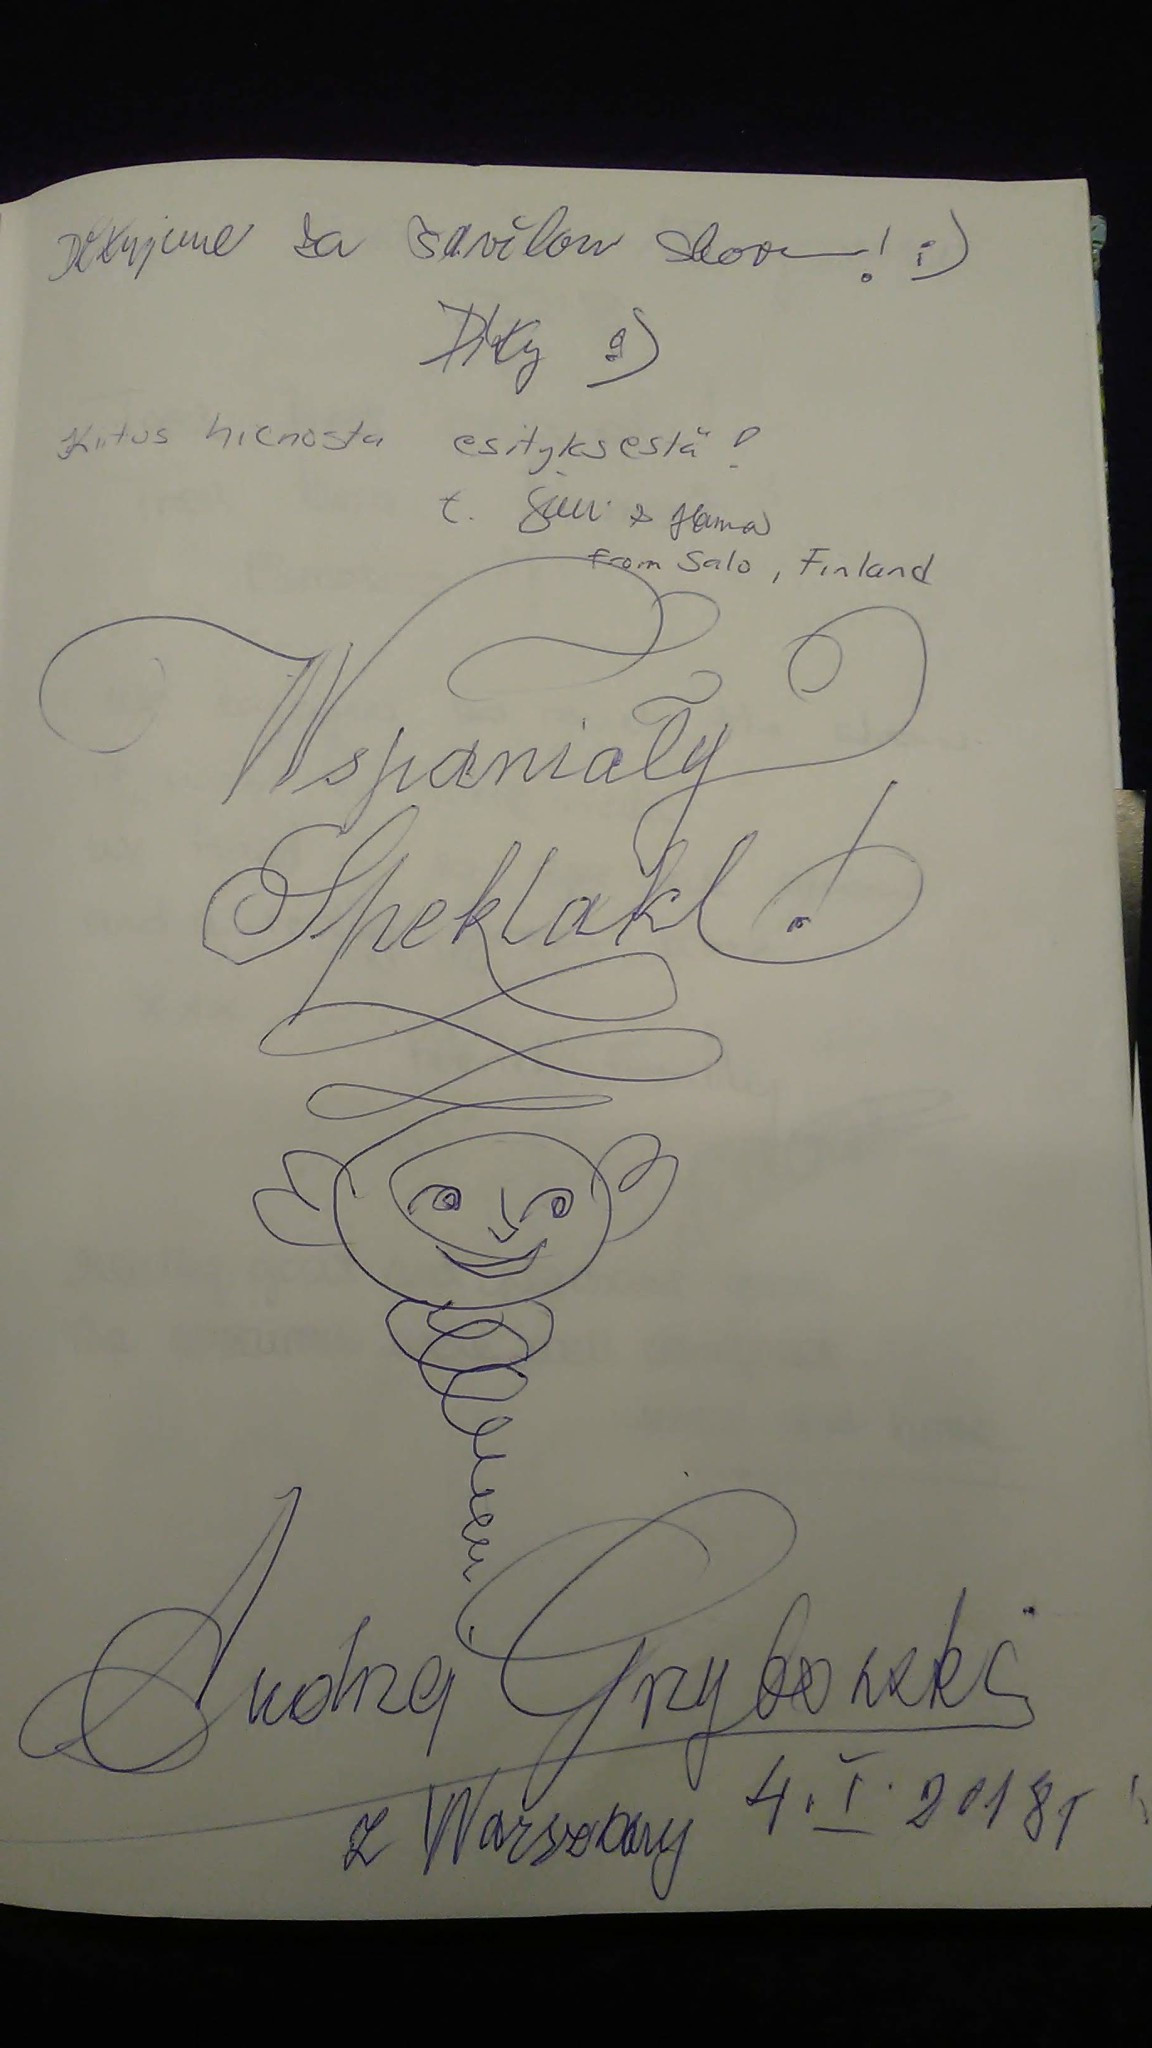 Děkujeme za skvělou show! :)
Díky :)
Kiitus hienosta esityksestä!
t. &
from Salo, Finland
Wspaniały
Spektakl!
Andrzej Grzybowski
z Warszawy 4.I.2018r